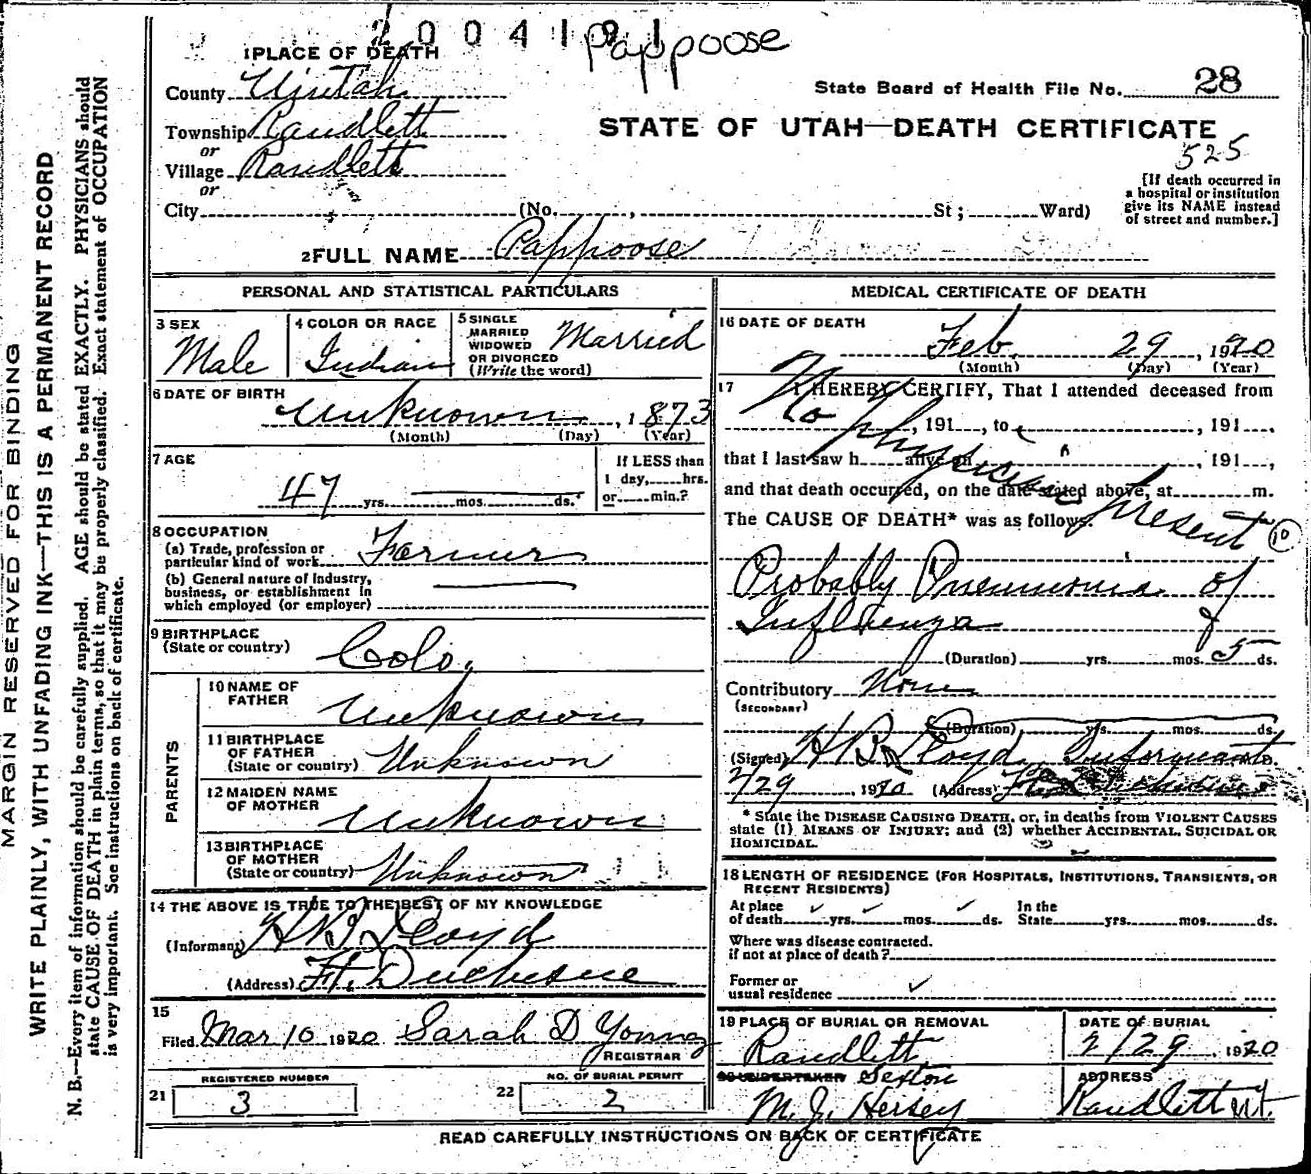 2004191
Pappoose
1 PLACE OF DEATH
County Uintah
State Board of Health File No. 28
Township Randlett
STATE OF UTAH—DEATH CERTIFICATE
or
525
Village Randlett
or
City (No. , St; Ward)
[If death occurred in a hospital or institution give its NAME instead of street and number.]
2 FULL NAME Pappoose
PERSONAL AND STATISTICAL PARTICULARS
3 SEX
Male
4 COLOR OR RACE
Indian
5 SINGLE
MARRIED
WIDOWED
OR DIVORCED
(Write the word)
Married
6 DATE OF BIRTH
Unknown , 1873
(Month) (Day) (Year)
7 AGE
47 yrs. mos. ds.
If LESS than
1 day, hrs.
or min.?
8 OCCUPATION
(a) Trade, profession or
particular kind of work Farmer
(b) General nature of industry,
business, or establishment in
which employed (or employer)
9 BIRTHPLACE
(State or country)
Colo.
PARENTS
10 NAME OF
FATHER
Unknown
11 BIRTHPLACE
OF FATHER
(State or country) Unknown
12 MAIDEN NAME
OF MOTHER
Unknown
13 BIRTHPLACE
OF MOTHER
(State or country) Unknown
14 THE ABOVE IS TRUE TO THE BEST OF MY KNOWLEDGE
(Informant) H B Lloyd
(Address) Ft. Duchesne
15
Filed Mar 10 1920 Sarah D Young
REGISTRAR
REGISTERED NUMBER
21 3
NO. OF BURIAL PERMIT
22 2
MEDICAL CERTIFICATE OF DEATH
16 DATE OF DEATH
Feb. 29, 1920
(Month) (Day) (Year)
17 I HEREBY CERTIFY, That I attended deceased from
, 191 , to , 191 ,
that I last saw h alive on , 191 ,
and that death occurred, on the date stated above, at m.
No physician present
The CAUSE OF DEATH* was as follows:
10
Probably Pneumonia of
Influenza
(Duration) yrs. mos. 5 ds.
Contributory None
(SECONDARY)
(Duration) yrs. mos. ds.
(Signed) H B Lloyd Informant
2/29, 1920 (Address) Ft. Duchesne
* State the DISEASE CAUSING DEATH, or, in deaths from VIOLENT CAUSES
state (1) MEANS OF INJURY; and (2) whether ACCIDENTAL, SUICIDAL OR
HOMICIDAL.
18 LENGTH OF RESIDENCE (FOR HOSPITALS, INSTITUTIONS, TRANSIENTS, OR
RECENT RESIDENTS)
At place
of death yrs. mos. ds.
In the
State yrs. mos. ds.
Where was disease contracted,
if not at place of death?
Former or
usual residence
19 PLACE OF BURIAL OR REMOVAL
Randlett
DATE OF BURIAL
2/29, 1920
20 UNDERTAKER Sexton
M. J. Hersey
ADDRESS
Randlett Ut.
READ CAREFULLY INSTRUCTIONS ON BACK OF CERTIFICATE
MARGIN RESERVED FOR BINDING
WRITE PLAINLY, WITH UNFADING INK—THIS IS A PERMANENT RECORD
N. B.—Every item of information should be carefully supplied. AGE should be stated EXACTLY. PHYSICIANS should
state CAUSE OF DEATH in plain terms, so that it may be properly classified. Exact statement of OCCUPATION
is very important. See instructions on back of certificate.